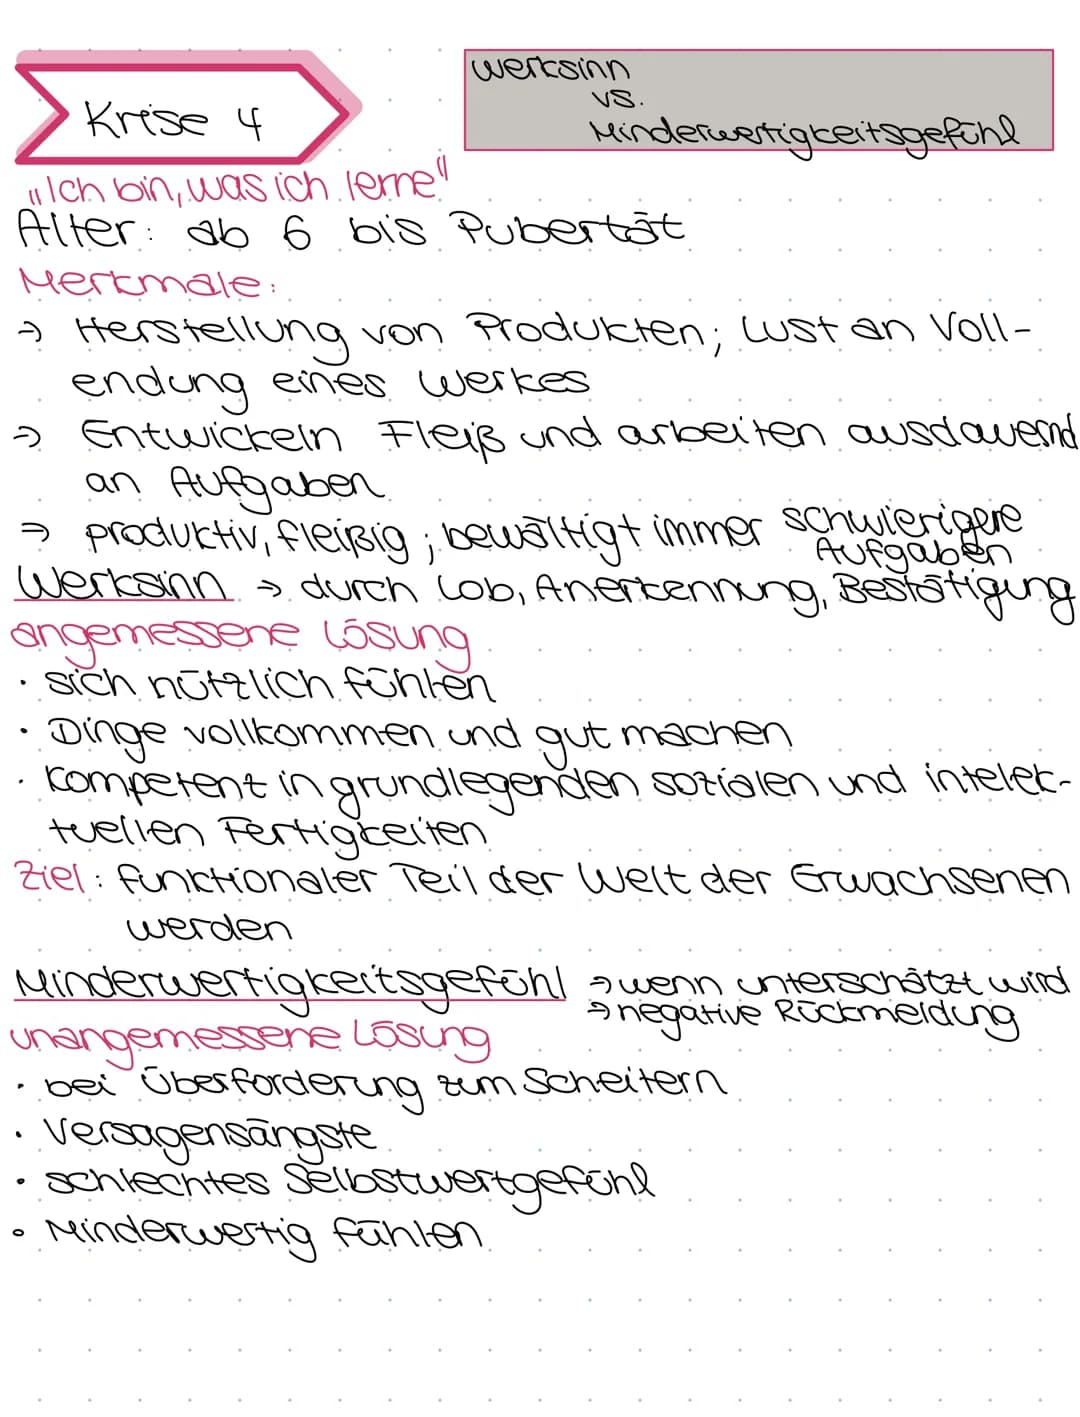 Krise 4
Werksinn
vs.
Minderwertigkeitsgefühl
"Ich bin, was ich lerne"
Alter: ab 6 bis Pubertät
Merkmale:
→ Herstellung von Produkten; Lust an Voll-
endung eines Werkes
→ Entwickeln Fleiß und arbeiten ausdauernd
an Aufgaben
→ produktiv, fleißig; bewältigt immer schwierigere
Aufgaben
Werksinn → durch Lob, Anerkennung, Bestätigung
angemessene Lösung
· sich nützlich fühlen
· Dinge vollkommen und gut machen
· Kompetent in grundlegenden sozialen und intelek-
tuellen Fertigkeiten
Ziel: funktionaler Teil der Welt der Erwachsenen
werden
Minderwertigkeitsgefühl → wenn unterschätzt wird
→ negative Rückmeldung
unangemessene Lösung
· bei Überforderung zum Scheitern
· Versagensängste
· schlechtes Selbstwertgefühl
· Minderwertig fühlen